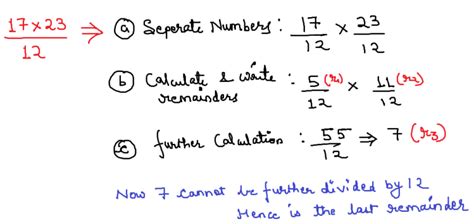 17×23/12 ⇒ ⓐ Seperate Numbers : 17/12 × 23/12
ⓑ Calculate & write : 5 (r₁)/12 × 11 (r₂)/12
remainders
ⓒ further Calculation : 55/12 ⇒ 7 (r₃)
Now 7 cannot be further divided by 12
Hence is the last remainder